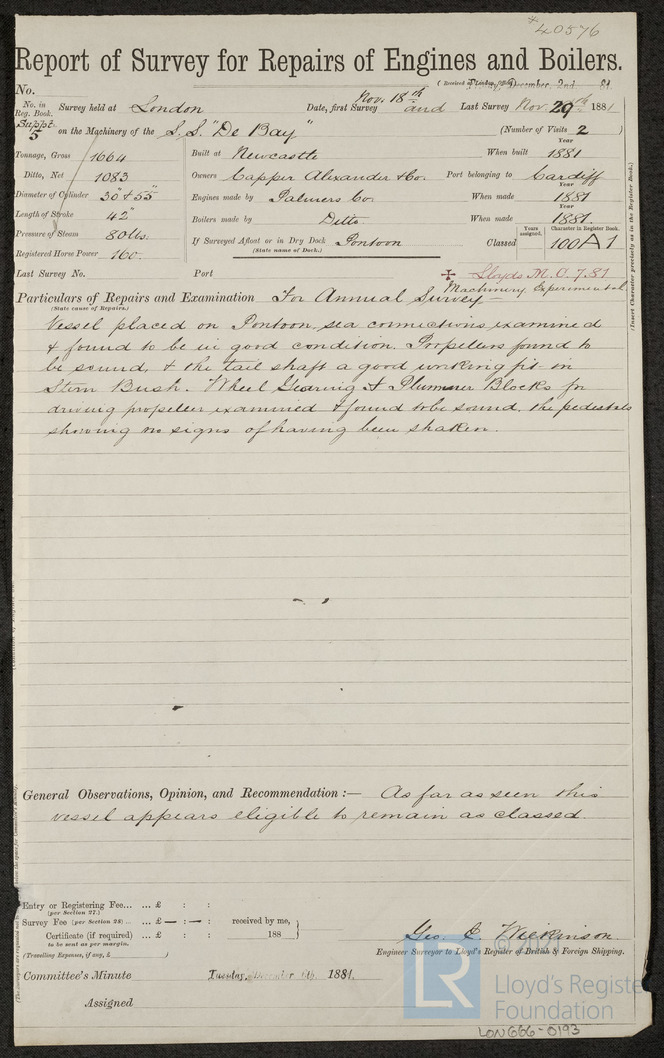 *40576
Report of Survey for Repairs of Engines and Boilers.
No. (Received December 2nd 81
No. in Reg. Book. Survey held at London Date, first Survey Nov. 18th and Last Survey Nov. 29th 1881
Suppt. 5 on the Machinery of the S.S. "De Bay" (Number of Visits 2 )
Tonnage, Gross 1664 Built at Newcastle When built Year 1881
Ditto, Net 1083 Owners Capper Alexander & Co. Port belonging to Cardiff
Diameter of Cylinder 30" & 55" Engines made by Palmers Co. When made Year 1881
Length of Stroke 42" Boilers made by Ditto When made Year 1881.
Pressure of Steam 80 lbs. If Surveyed Afloat or in Dry Dock Pontoon Classed Years assigned. Character in Register Book. 100 A 1
(State name of Dock.)
Registered Horse Power 160.
Last Survey No. Port ✠ Lloyds M.C. 7.81
Machinery Experimental
Particulars of Repairs and Examination For Annual Survey—
(State cause of Repairs.)
Vessel placed on Pontoon, sea connections examined
& found to be in good condition. Propellers found to
be sound, & the tail shaft a good working fit in
Stern Bush. Wheel Gearing & Plummer Blocks for
driving propeller examined & found to be sound, the pedestals
showing no signs of having been shaken.
(Insert Character precisely as in the Register Book.)
General Observations, Opinion, and Recommendation :— As far as seen this
vessel appears eligible to remain as classed.
Entry or Registering Fee... ... £ : :
(per Section 27.)
Survey Fee (per Section 28) ... £ — : — : received by me,
Certificate (if required) ... £ : : 188
to be sent as per margin.
(Travelling Expenses, if any, £ )
Geo. C. Wilkinson
Engineer Surveyor to Lloyd's Register of British & Foreign Shipping.
Committee's Minute Tuesday, December 6th, 1881.
Assigned
LR
Lloyd's Register
Foundation
LON666-0193